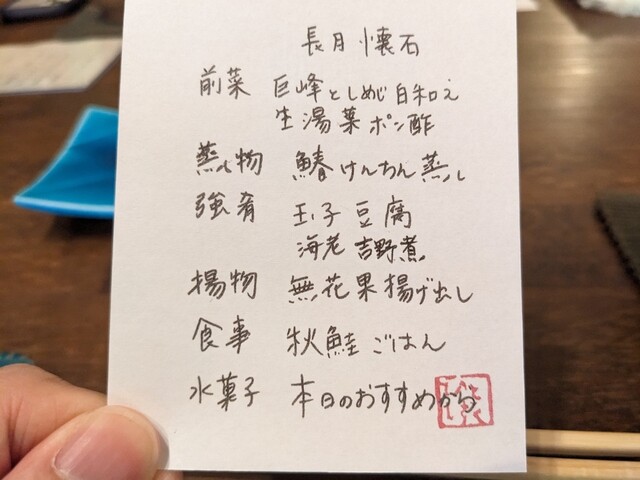 長月懐石
前菜 巨峰としめじ白和え
生湯葉ポン酢
蒸し物 鰆けんちん蒸し
強肴 玉子豆腐
海老吉野煮
揚物 無花果揚げ出し
食事 秋鮭ごはん
水菓子 本日のおすすめから